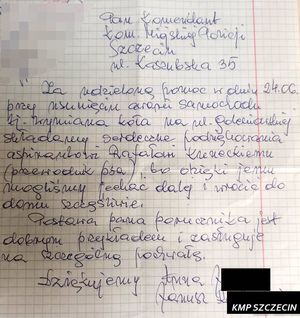 Pan Komendant
Kom. Miejskiej Policji
Szczecin
ul. Kaszubska 35
Za udzieloną pomoc w dniu 24.06.
przy usunięciu awarii samochodu
tj. wymiana koła na ul. Goleniowskiej
składamy serdeczne podziękowania
aspirantowi Rafałowi
przewodnik psa, bo dzięki jemu
mogliśmy jechać dalej i wrócić do
domu szczęśliwie.
Postawa pana porucznika jest
dobrym przykładem i zasługuje
na szczególną pochwałę.
Dziękujemy Anna
Janusz
KMP SZCZECIN